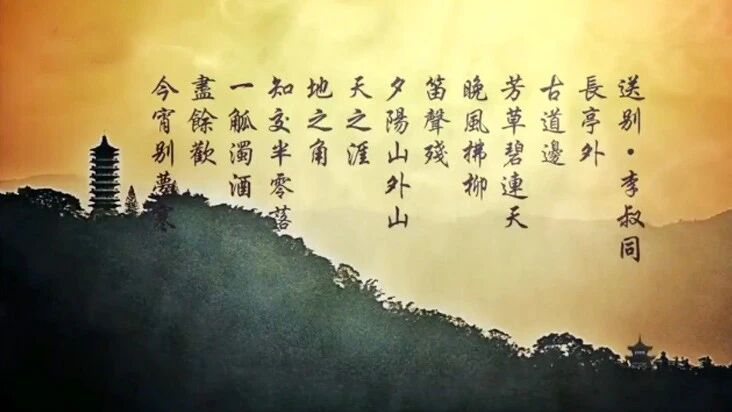 送别·李叔同
長亭外
古道邊
芳草碧連天
晚風拂柳
笛聲殘
夕陽山外山
天之涯
地之角
知交半零落
一觚濁酒
盡餘歡
今宵别夢寒